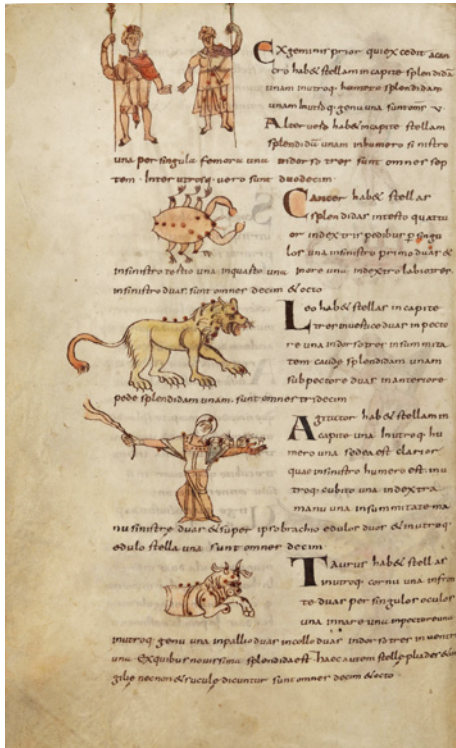 Ex geminis prior qui excedit a can
cro hab& stellam in capite splendidā
unam inutroq; humero splendidam
unam Inutiq; genu una sunt omṡ v.
Alter vero hab& incapite stellam
splendidā unam inhumero sinistro
una per singula femora una indorso tres sunt omnes sep
tem. Inter utrosq; vero sunt duodecim.
Cancer hab& stellas
splendidas intesto quattu
or indextris pedibus p singu
los una insinistro primo duas &
insinistro tertio una inquarto una inore una indextro labio tres
insinistro duas. sunt omnes decim & octo
Leo hab& stellas incapite
tres incervice duas in pecto
re una indorso tres insummita
tem caude splendidam unam
subpectore duas in anteriore
pede splendidam unam. sunt omnes tridecim
Agitator hab& stellam in
capite una. Inutroq; hu
mero una sed ea est clarior
quae insinistro humero est. inu
troq; cubito una indextra
manu una insummitate ma
nu sinistre duas & super ipso brachio edulos duos & inutroq;
edulo stella una sunt omnes decim.
Taurus hab& stellas
inutroq; cornu una infron
te duas per singulos oculos
una innare una inpectore una
inutroq; genu una inpallio duas incollo duas indorso tres in ventre
una. Ex quibus novissima splendida est. haec autem stelle pliades &
gilie necnon & sucule dicuntur sunt omnes decim & octo.